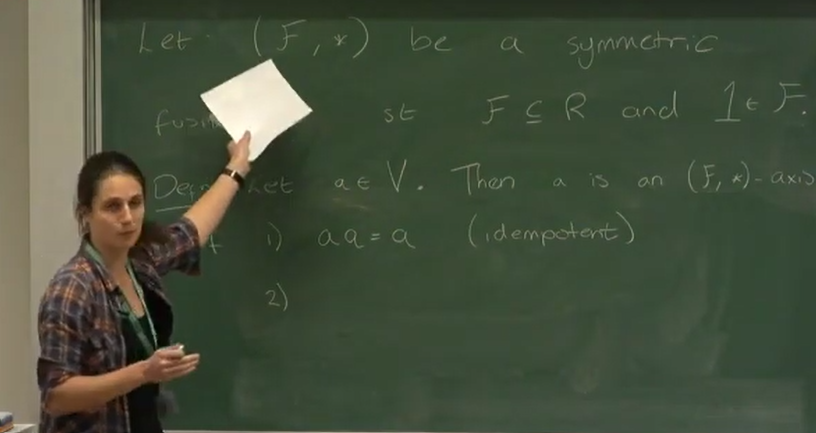 Let (F, *) be a symmetric
st F ⊆ R and 1 ∈ F.
Defn Let a ∈ V. Then a is an (F, *)-axis
1) aa = a (idempotent)
2)